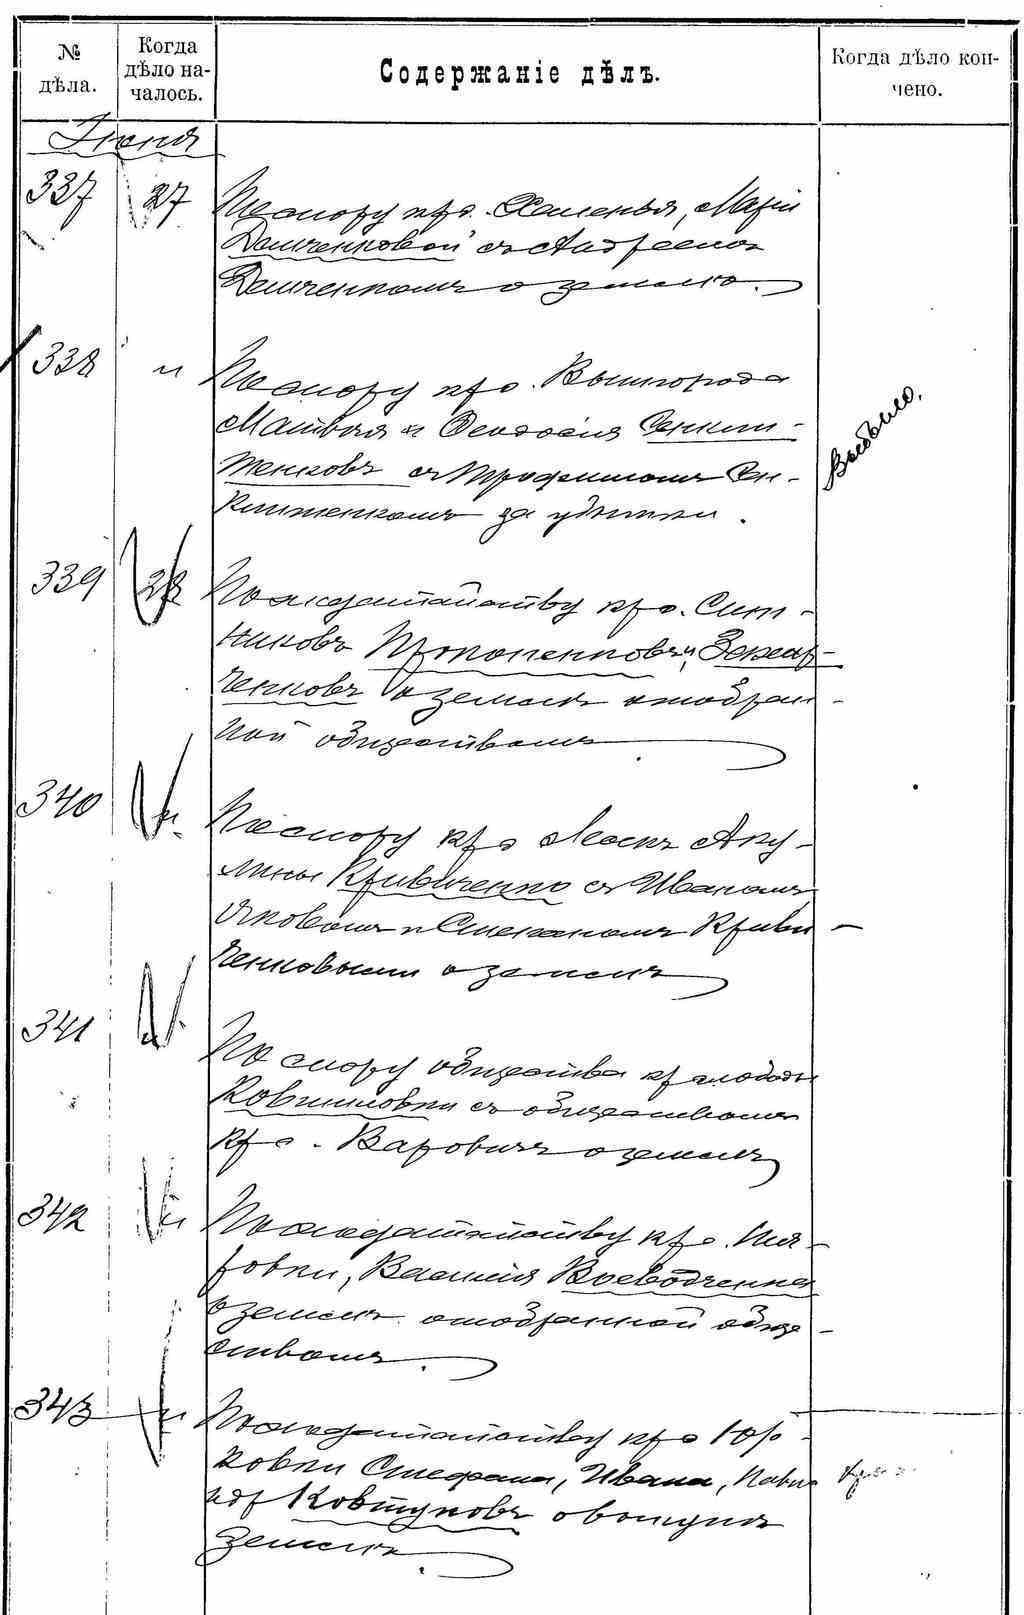 № дѣла.
Когда дѣло на-
чалось.
Содержаніе дѣлъ.
Когда дѣло кон-
чено.
Іюня
337 27 По спору кр. с. Маріи
Демченковой съ Андреемъ
Демченкомъ о землю.
338 " По спору кр. с. Вышгорода
Матвѣя и Ѳеодосія
женковъ съ Трофимомъ
за убытки.
выбыло.
339 28 По ходатайству кр. с. Сит-
никовъ Прокопенковъ и Захар-
ченковъ о землѣ отобран-
ной обществомъ
340 " По спору кр. с. Аку-
лины Кривиченко съ Иваномъ
Яковомъ и Степаномъ Криви-
ченковыми о землѣ
341 " По спору общества кр. слободы
Ковшиловки съ обществомъ
кр. с. Варовичъ о землѣ
342 " По ходатайству кр. с.
ровки, Василія Воеводченка
о землѣ отобранной обще-
ствомъ.
343 " По ходатайству кр. с. Юр-
ковки Стефана, Ивана,
и др. Ковтуновъ о выкупѣ
земель.